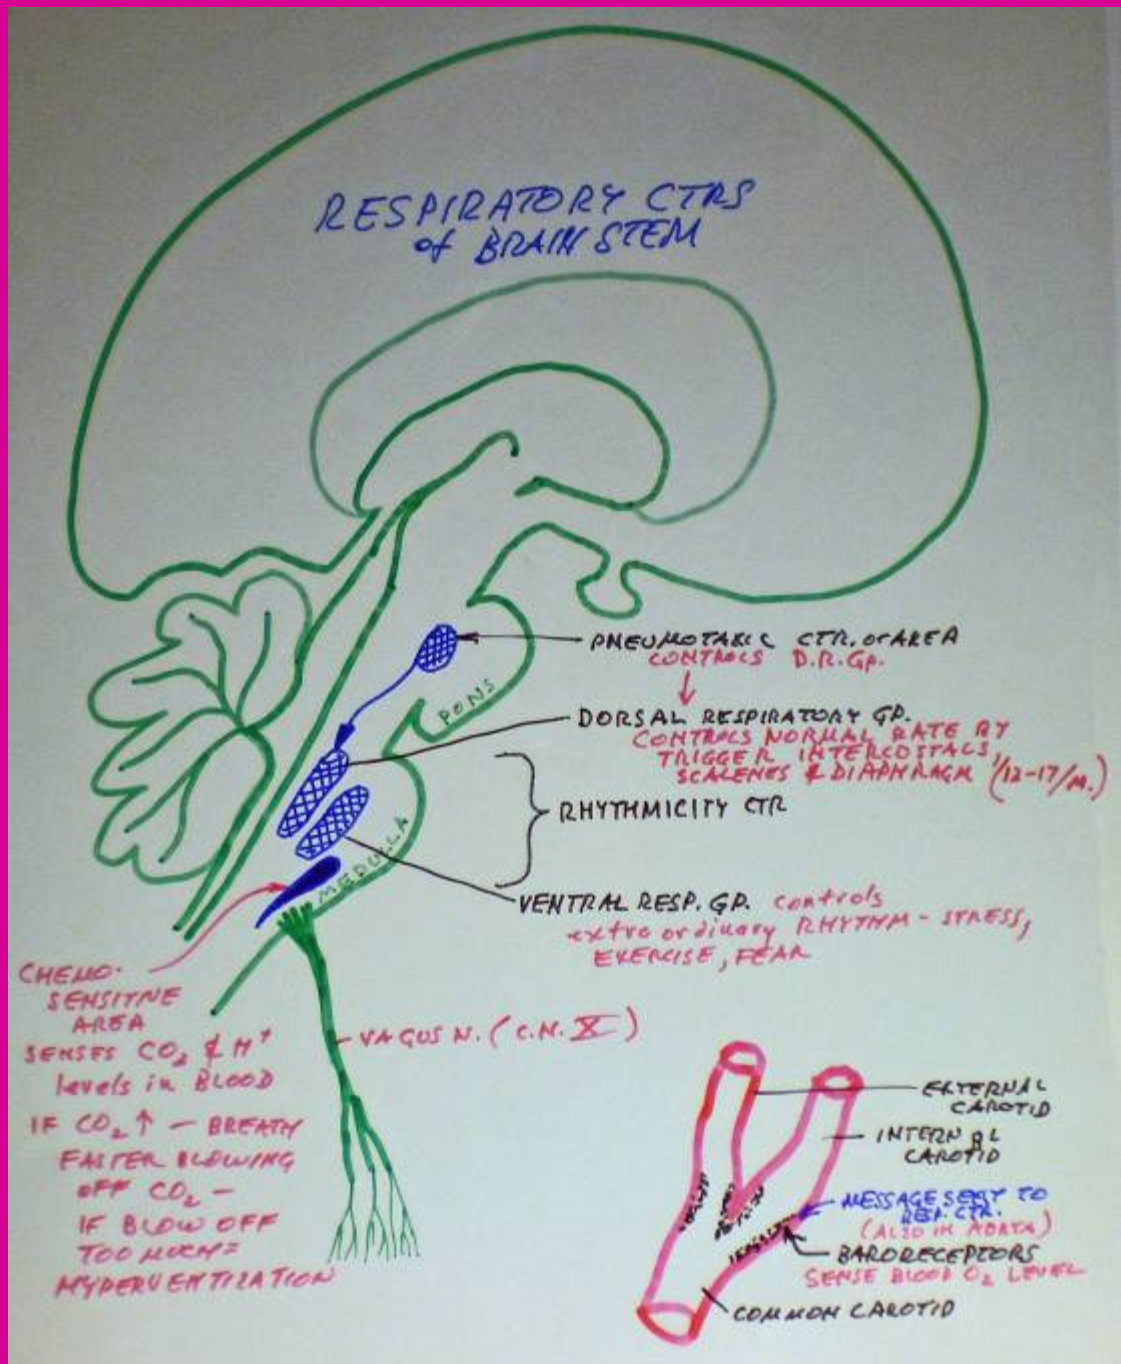 RESPIRATORY CTRS
of BRAIN STEM
PNEUMOTAXIC CTR. or AREA
CONTROLS D.R.GP.
DORSAL RESPIRATORY GP.
CONTROLS NORMAL RATE BY
TRIGGER INTERCOSTALS,
SCALENES & DIAPHRAGM (12-17/M.)
RHYTHMICITY CTR
VENTRAL RESP. GP. controls
extra ordinary RHYTHM - STRESS,
EXERCISE, FEAR
PONS
MEDULLA
CHEMO-
SENSITIVE
AREA
SENSES CO₂ & H⁺
levels in BLOOD
IF CO₂ ↑ - BREATH
FASTER BLOWING
OFF CO₂ -
IF BLOW OFF
TOO MUCH=
HYPERVENTILATION
VAGUS N. (C.N. X)
EXTERNAL
CAROTID
INTERNAL
CAROTID
MESSAGE SENT TO
RESP. CTR.
(ALSO IN AORTA)
BARORECEPTORS
SENSE BLOOD O₂ LEVEL
COMMON CAROTID